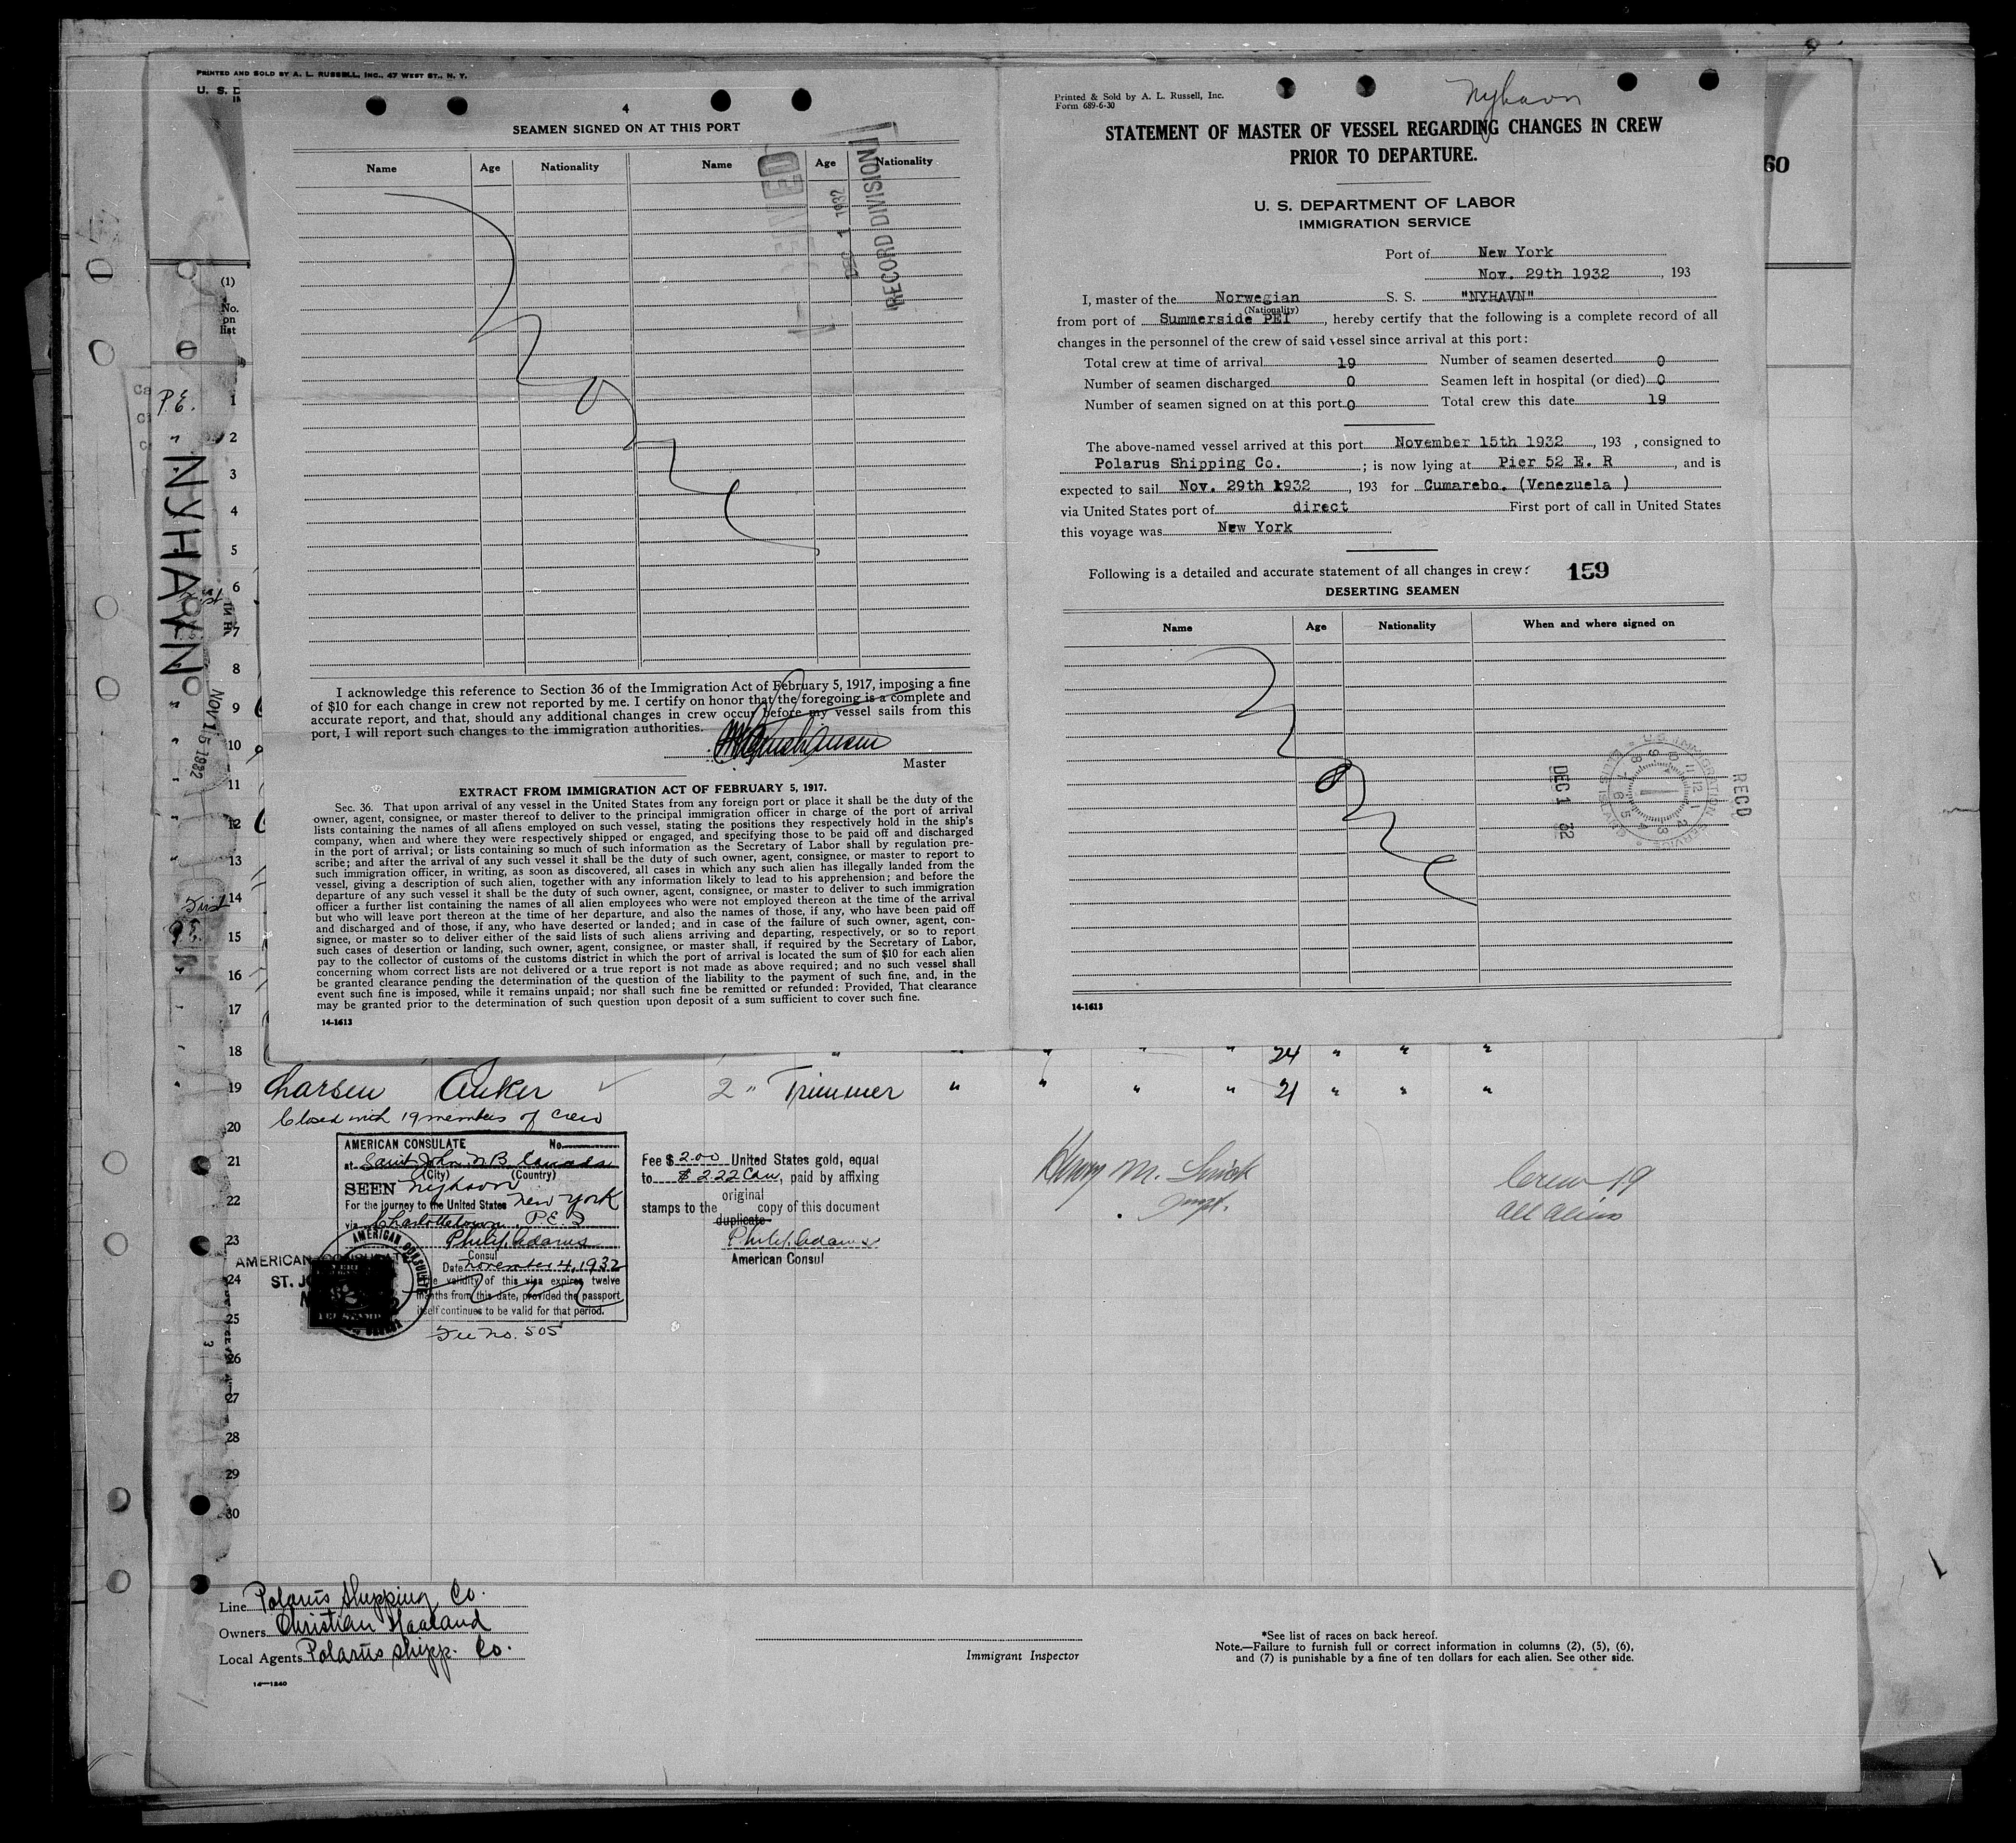 PRINTED AND SOLD BY A. L. RUSSELL, INC., 47 WEST ST., N. Y.
U. S. D
4
SEAMEN SIGNED ON AT THIS PORT
Name Age Nationality Name Age Nationality
RECEIVED
DEC 1 1932
RECORD DIVISION
I acknowledge this reference to Section 36 of the Immigration Act of February 5, 1917, imposing a fine
of $10 for each change in crew not reported by me. I certify on honor that the foregoing is a complete and
accurate report, and that, should any additional changes in crew occur before my vessel sails from this
port, I will report such changes to the immigration authorities.
Master
EXTRACT FROM IMMIGRATION ACT OF FEBRUARY 5, 1917.
Sec. 36. That upon arrival of any vessel in the United States from any foreign port or place it shall be the duty of the
owner, agent, consignee, or master thereof to deliver to the principal immigration officer in charge of the port of arrival
lists containing the names of all aliens employed on such vessel, stating the positions they respectively hold in the ship's
company, when and where they were respectively shipped or engaged, and specifying those to be paid off and discharged
in the port of arrival; or lists containing so much of such information as the Secretary of Labor shall by regulation pre-
scribe; and after the arrival of any such vessel it shall be the duty of such owner, agent, consignee, or master to report to
such immigration officer, in writing, as soon as discovered, all cases in which any such alien has illegally landed from the
vessel, giving a description of such alien, together with any information likely to lead to his apprehension; and before the
departure of any such vessel it shall be the duty of such owner, agent, consignee, or master to deliver to such immigration
officer a further list containing the names of all alien employees who were not employed thereon at the time of the arrival
but who will leave port thereon at the time of her departure, and also the names of those, if any, who have been paid off
and discharged and of those, if any, who have deserted or landed; and in case of the failure of such owner, agent, con-
signee, or master so to deliver either of the said lists of such aliens arriving and departing, respectively, or so to report
such cases of desertion or landing, such owner, agent, consignee, or master shall, if required by the Secretary of Labor,
pay to the collector of customs of the customs district in which the port of arrival is located the sum of $10 for each alien
concerning whom correct lists are not delivered or a true report is not made as above required; and no such vessel shall
be granted clearance pending the determination of the question of the liability to the payment of such fine, and, in the
event such fine is imposed, while it remains unpaid; nor shall such fine be remitted or refunded: Provided, That clearance
may be granted prior to the determination of such question upon deposit of a sum sufficient to cover such fine.
14-1613
Printed & Sold by A. L. Russell, Inc.
Form 689-6-30
Nyhavn
STATEMENT OF MASTER OF VESSEL REGARDING CHANGES IN CREW
PRIOR TO DEPARTURE.
U. S. DEPARTMENT OF LABOR
IMMIGRATION SERVICE
Port of New York
Nov. 29th 1932, 193
I, master of the Norwegian S. S. "NYHAVN"
(Nationality)
from port of Summerside PEI, hereby certify that the following is a complete record of all
changes in the personnel of the crew of said vessel since arrival at this port:
Total crew at time of arrival 19 Number of seamen deserted 0
Number of seamen discharged 0 Seamen left in hospital (or died) 0
Number of seamen signed on at this port 0 Total crew this date 19
The above-named vessel arrived at this port November 15th 1932, 193 , consigned to
Polarus Shipping Co. ; is now lying at Pier 52 E. R, and is
expected to sail Nov. 29th 1932, 193 for Cumarebo. (Venezuela )
via United States port of direct First port of call in United States
this voyage was New York
Following is a detailed and accurate statement of all changes in crew:
159
DESERTING SEAMEN
Name Age Nationality When and where signed on
RECD
DEC 1 32
U.S. IMMIGRATION SERVICE
14-1613
60
(1)
No.
on
list
P.E.
NYHAVN
Nov 15 1932
1
2
3
4
5
6
7
8
9
10
11
12
13
14
15
P.E.
16
17
18 " " " " " 24 " " "
19 Larsen Anker 2 " Trimmer " " " " 21 " " "
Closed with 19 members of crew
20
21
22
23
24
25
26
27
28
29
30
AMERICAN CONSULATE No.
at Saint John N B Canada
(City) (Country)
SEEN Nyhavn
For the journey to the United States New York
via Charlottetown, P.E.I
Philip Adams
Consul
Date November 4, 1932
The validity of this visa expires twelve
months from this date, provided the passport
itself continues to be valid for that period.
Fee No. 505
AMERICAN CONSULATE
Fee $2.00 United States gold, equal
to $2.22 Can, paid by affixing
original
stamps to the copy of this document
duplicate
Philip Adams
American Consul
Crew 19
All Aliens
Line Polarus Shipping Co.
Owners Christian Haaland
Local Agents Polarus Shipp. Co.
14—1240
Immigrant Inspector
*See list of races on back hereof.
Note.—Failure to furnish full or correct information in columns (2), (5), (6),
and (7) is punishable by a fine of ten dollars for each alien. See other side.